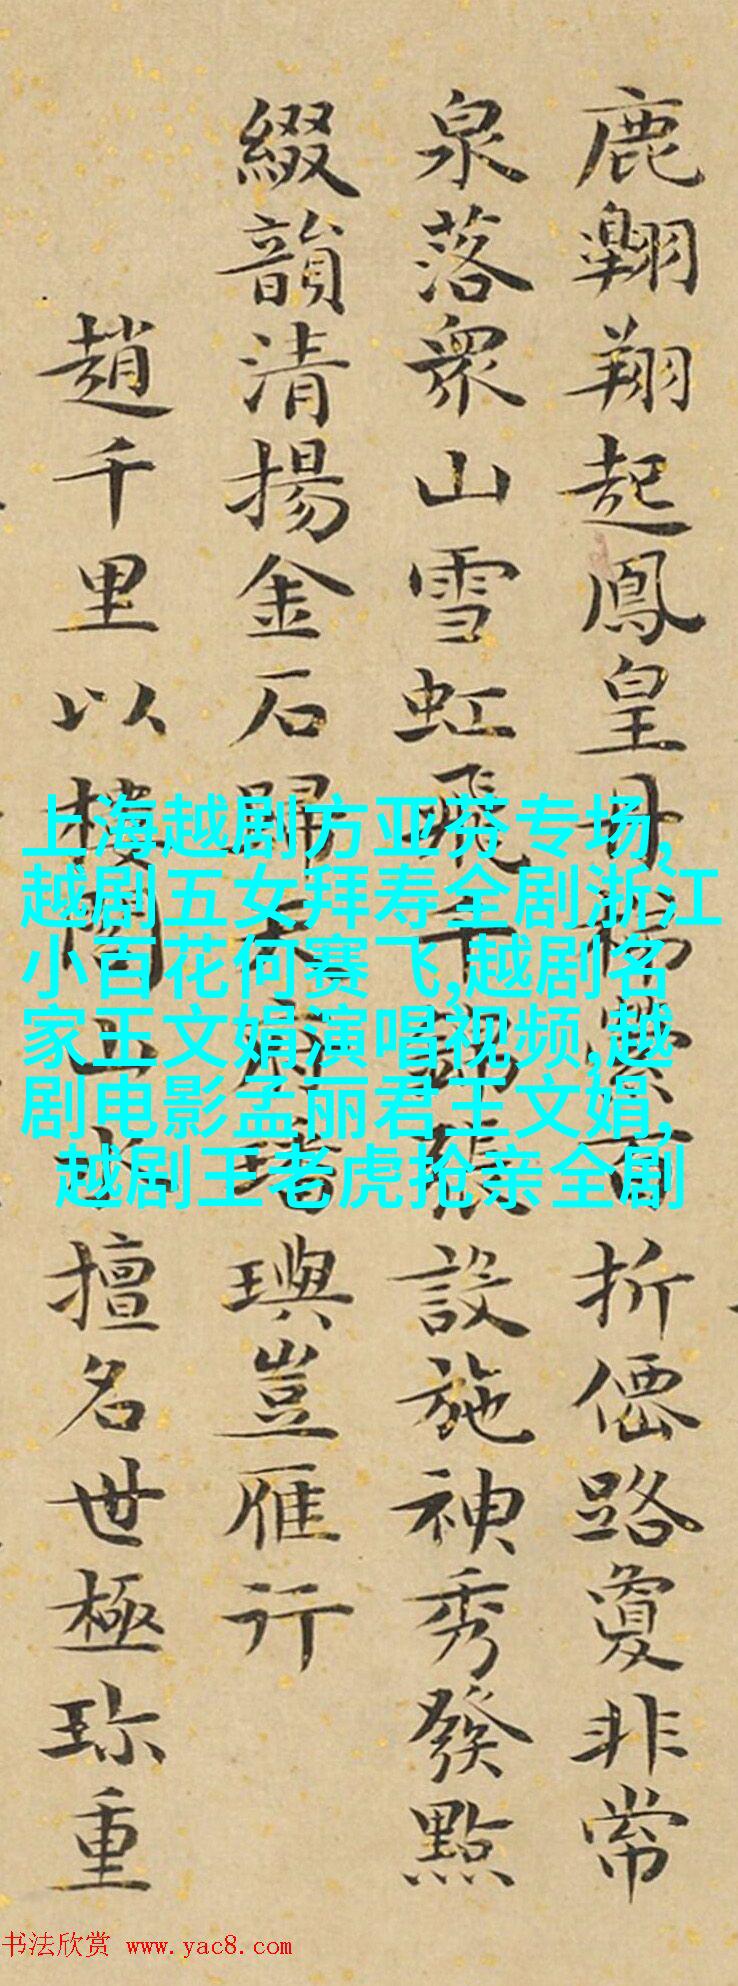 鹿翺翔起鳳皇丹梯縈百折僊路敻非常
泉落衆山雪虹飛千張設施神秀發點
綴韻清揚金石歸璵豈雁行
趙千里以樓閣山水擅名世極珎重
上海越剧方亚芬专场,
越剧五女拜寿全剧浙江
小百花何赛飞,越剧名
家王文娟演唱视频,越
剧电影孟丽君王文娟,
越剧王老虎抢亲全剧
书法欣赏 www.yac8.com